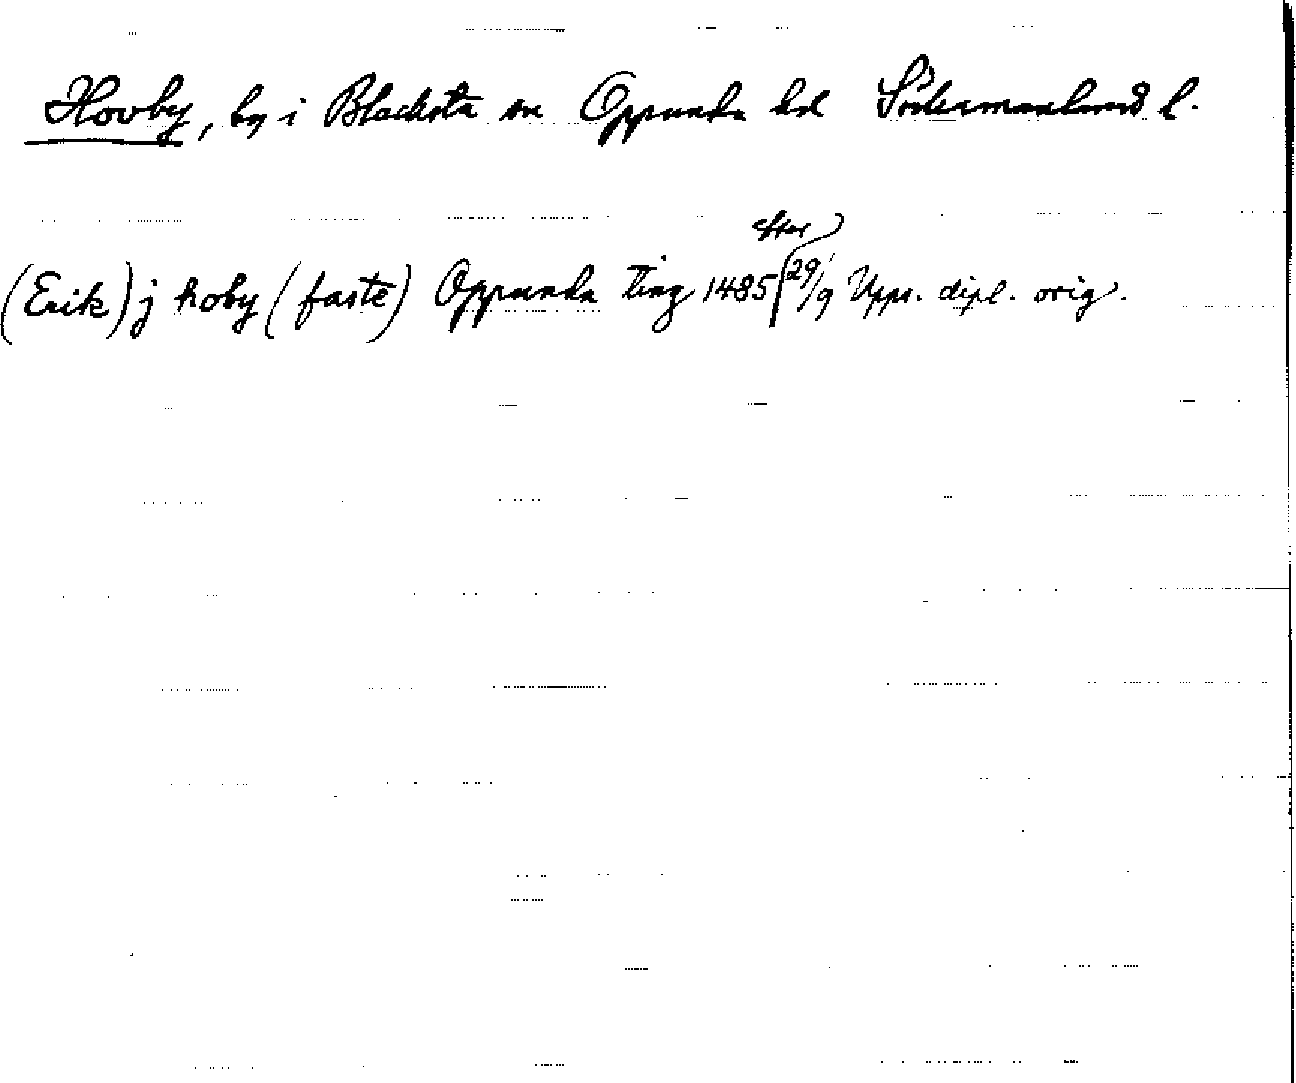 Hovby, by i Blacksta sn Oppunda hd Södermanlands l.
(Erik) j hoby (faste) Oppunda Ting 1485 efter 29/9 Upps. dipl. orig.